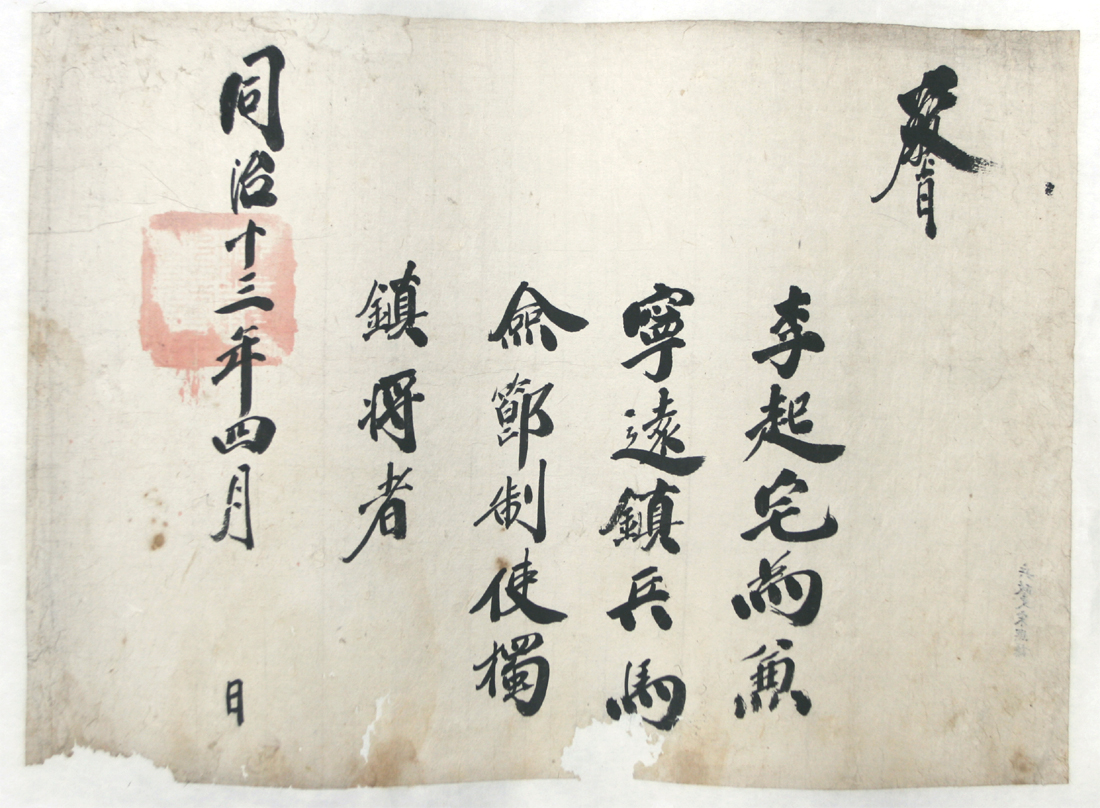 敎旨
李起宅爲兼
寧遠鎭兵馬
僉節制使獨
鎭將者
同治十三年四月 日